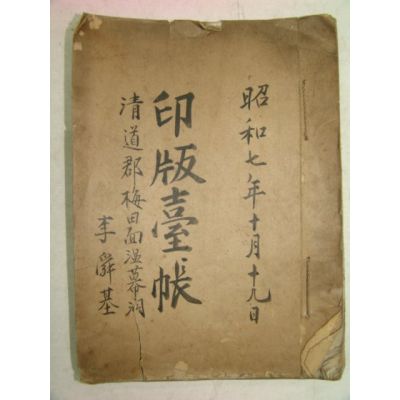 昭和七年十月十九日
印版臺帳
清道郡梅田面温幕洞
李舜基